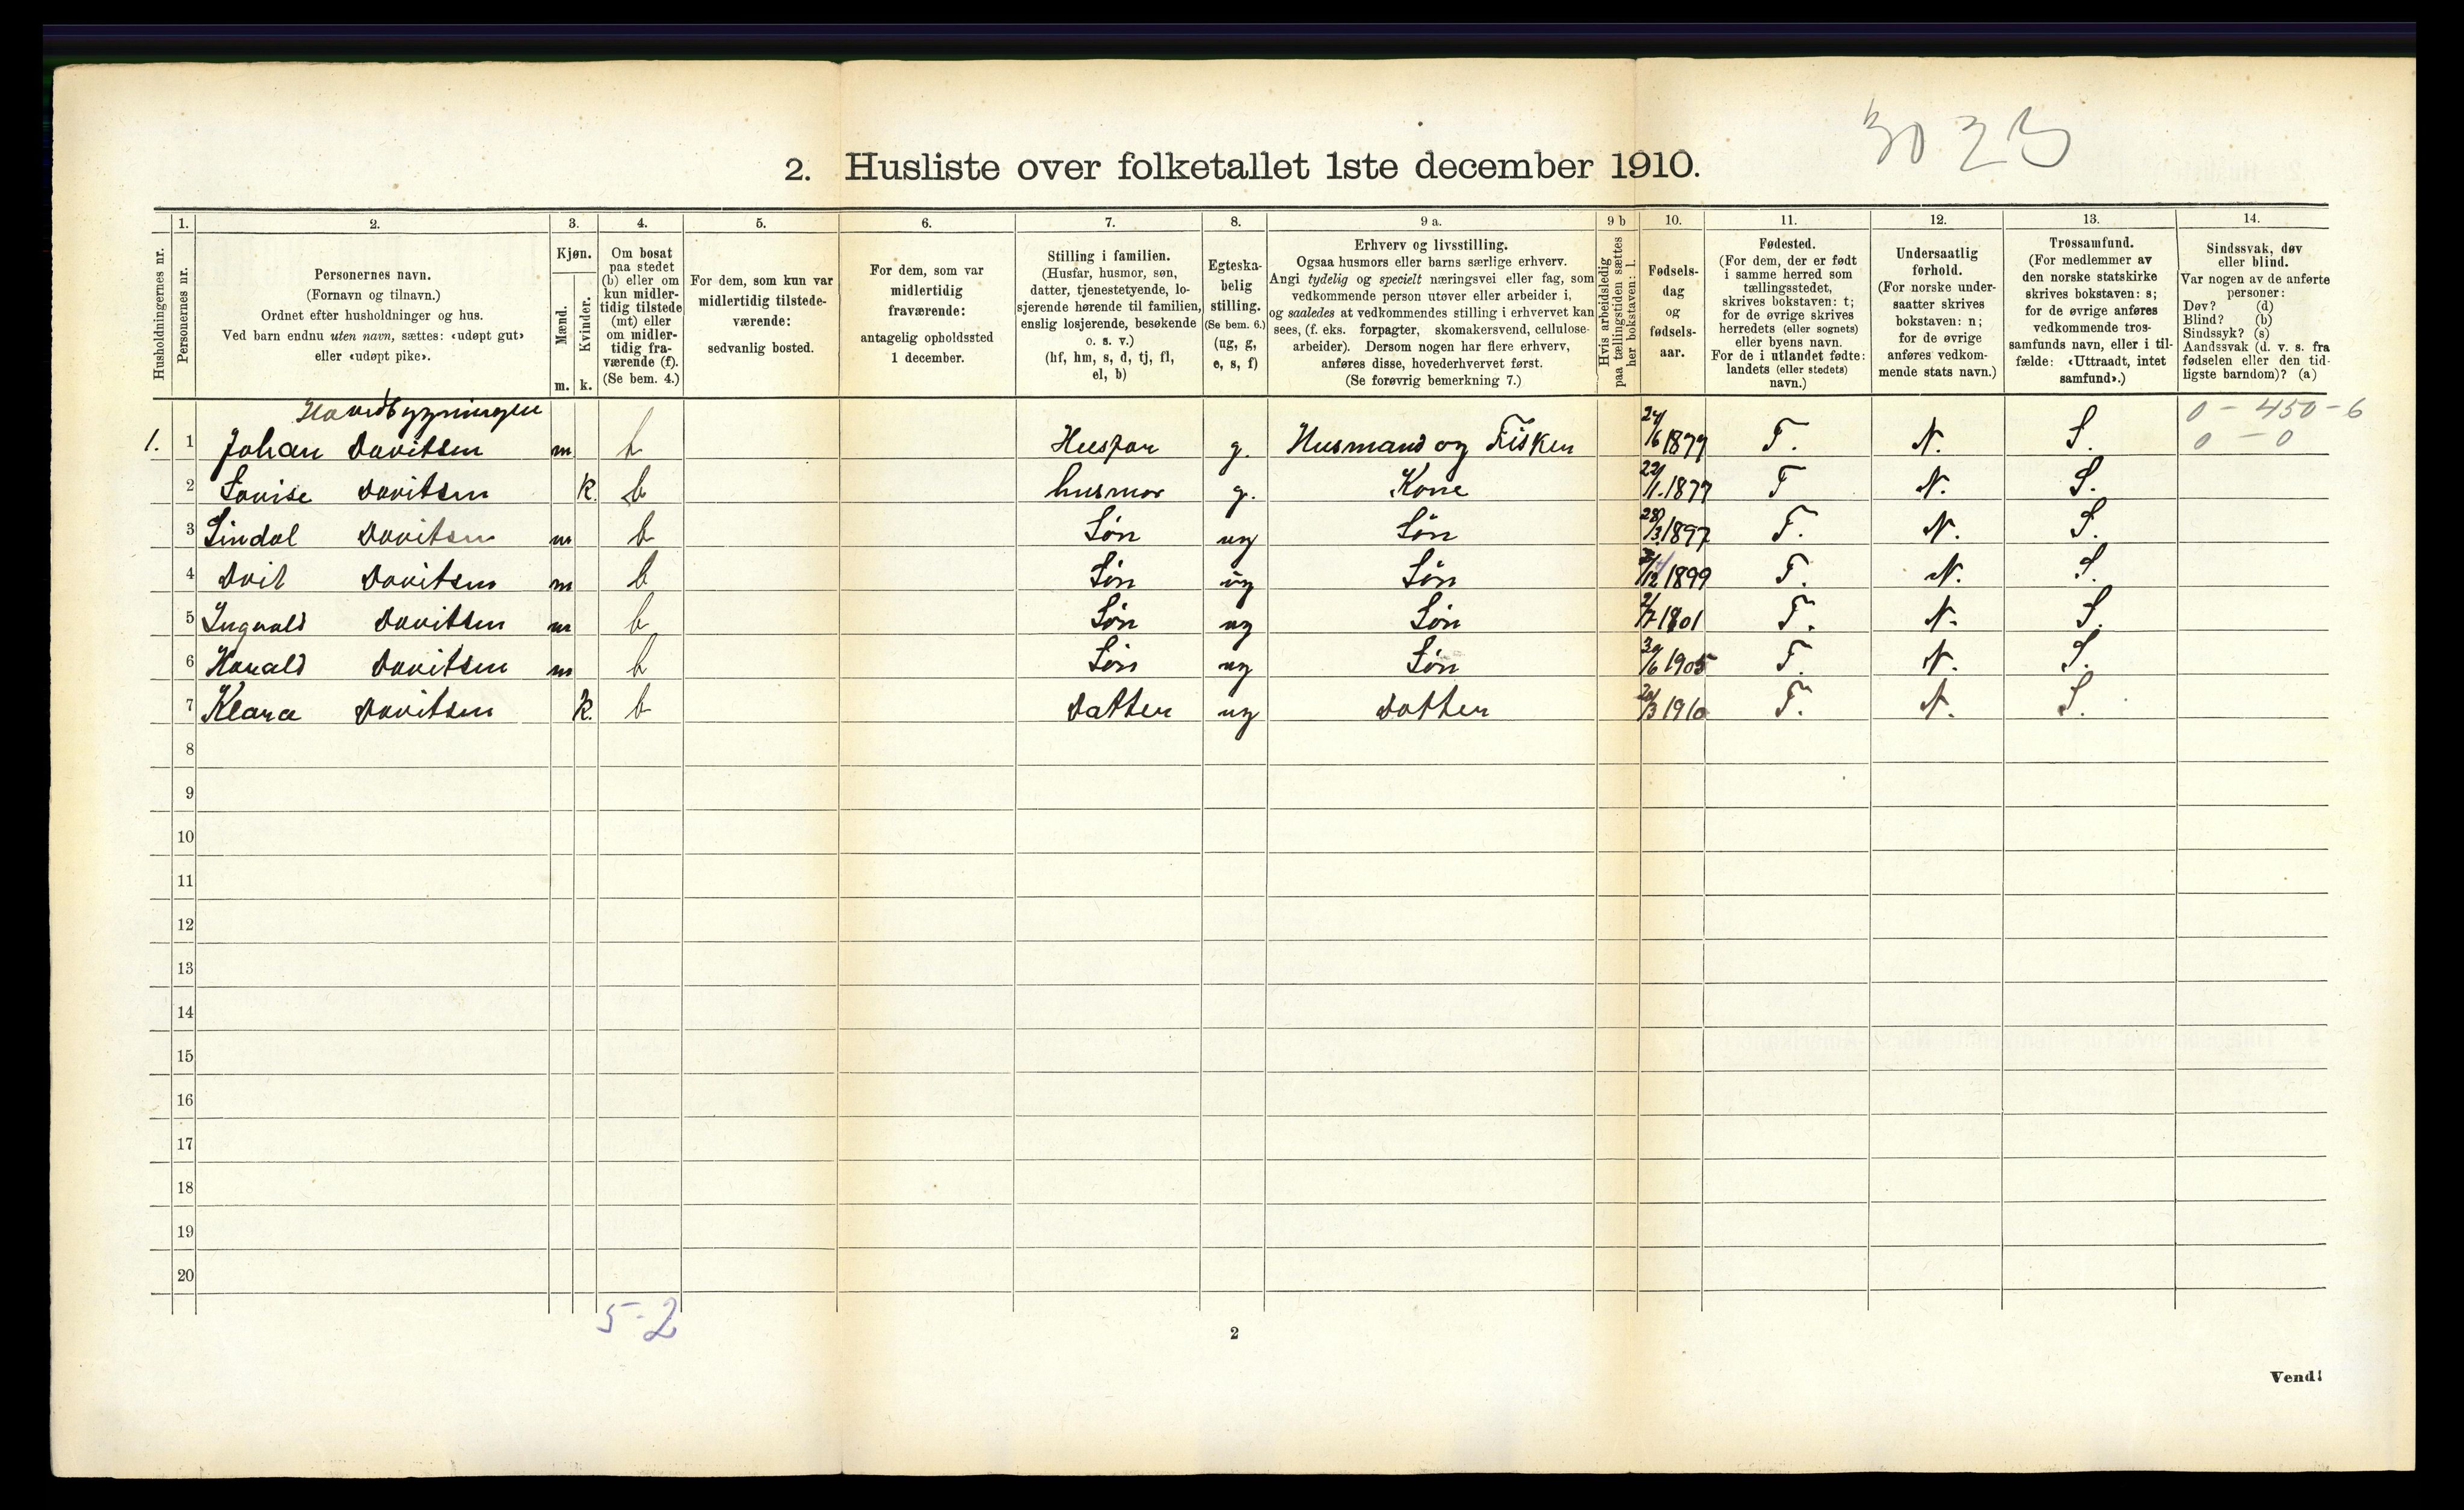 3023
2. Husliste over folketallet 1ste december 1910.
Husholdningernes nr.
1.
Personernes nr.
2.
Personernes navn.
(Fornavn og tilnavn.)
Ordnet efter husholdninger og hus.
Ved barn endnu uten navn, sættes: «udøpt gut»
eller «udøpt pike».
3.
Kjøn.
Mænd.
Kvinder.
m. k.
4.
Om bosat
paa stedet
(b) eller om
kun midler-
tidig tilstede
(mt) eller
om midler-
tidig fra-
værende (f).
(Se bem. 4.)
5.
For dem, som kun var
midlertidig tilstede-
værende:
sedvanlig bosted.
6.
For dem, som var
midlertidig
fraværende:
antagelig opholdssted
1 december.
7.
Stilling i familien.
(Husfar, husmor, søn,
datter, tjenestetyende, lo-
sjerende hørende til familien,
enslig losjerende, besøkende
o. s. v.)
(hf, hm, s, d, tj, fl,
el, b)
8.
Egteska-
belig
stilling.
(Se bem. 6.)
(ug, g,
e, s, f)
9 a.
Erhverv og livsstilling.
Ogsaa husmors eller barns særlige erhverv.
Angi tydelig og specielt næringsvei eller fag, som
vedkommende person utøver eller arbeider i,
og saaledes at vedkommendes stilling i erhvervet kan
sees, (f. eks. forpagter, skomakersvend, cellulose-
arbeider). Dersom nogen har flere erhverv,
anføres disse, hovederhvervet først.
(Se forøvrig bemerkning 7.)
9 b
Hvis arbeidsledig
paa tællingstiden sættes
her bokstaven: l.
10.
Fødsels-
dag
og
fødsels-
aar.
11.
Fødested.
(For dem, der er født
i samme herred som
tællingsstedet,
skrives bokstaven: t;
for de øvrige skrives
herredets (eller sognets)
eller byens navn.
For de i utlandet fødte:
landets (eller stedets)
navn.)
12.
Undersaatlig
forhold.
(For norske under-
saatter skrives
bokstaven: n;
for de øvrige
anføres vedkom-
mende stats navn.)
13.
Trossamfund.
(For medlemmer av
den norske statskirke
skrives bokstaven: s;
for de øvrige anføres
vedkommende tros-
samfunds navn, eller i til-
fælde: «Uttraadt, intet
samfund».)
14.
Sindssvak, døv
eller blind.
Var nogen av de anførte
personer:
Døv? (d)
Blind? (b)
Sindssyk? (s)
Aandssvak (d. v. s. fra
fødselen eller den tid-
ligste barndom)? (a)
Hovedbygningen
0 - 450 - 6
1. 1 Johan Davitsen m b Husfar g. Husmand og Fisker 24/6 1877 T. N. S. 0 - 0
2 Lovise Davitsen k b husmor g. Kone /1. 1877 T N. S.
3 Lindal Davitsen m b Søn ug Søn 28/3. 1897 T. N. S.
4 Davitsen m b Søn ug Søn /12 1899 T. N. S.
5 Ingvald Davitsen m b Søn ug Søn 1901 T. N. S.
6 Harald Davitsen m b Søn ug Søn 30/6 1905 T. N. S.
7 Klara Davitsen k. b Datter ug Datter 20/3 1910 T. N. S.
8
9
10
11
12
13
14
15
16
17
18
19
20
5-2
2
Vend!